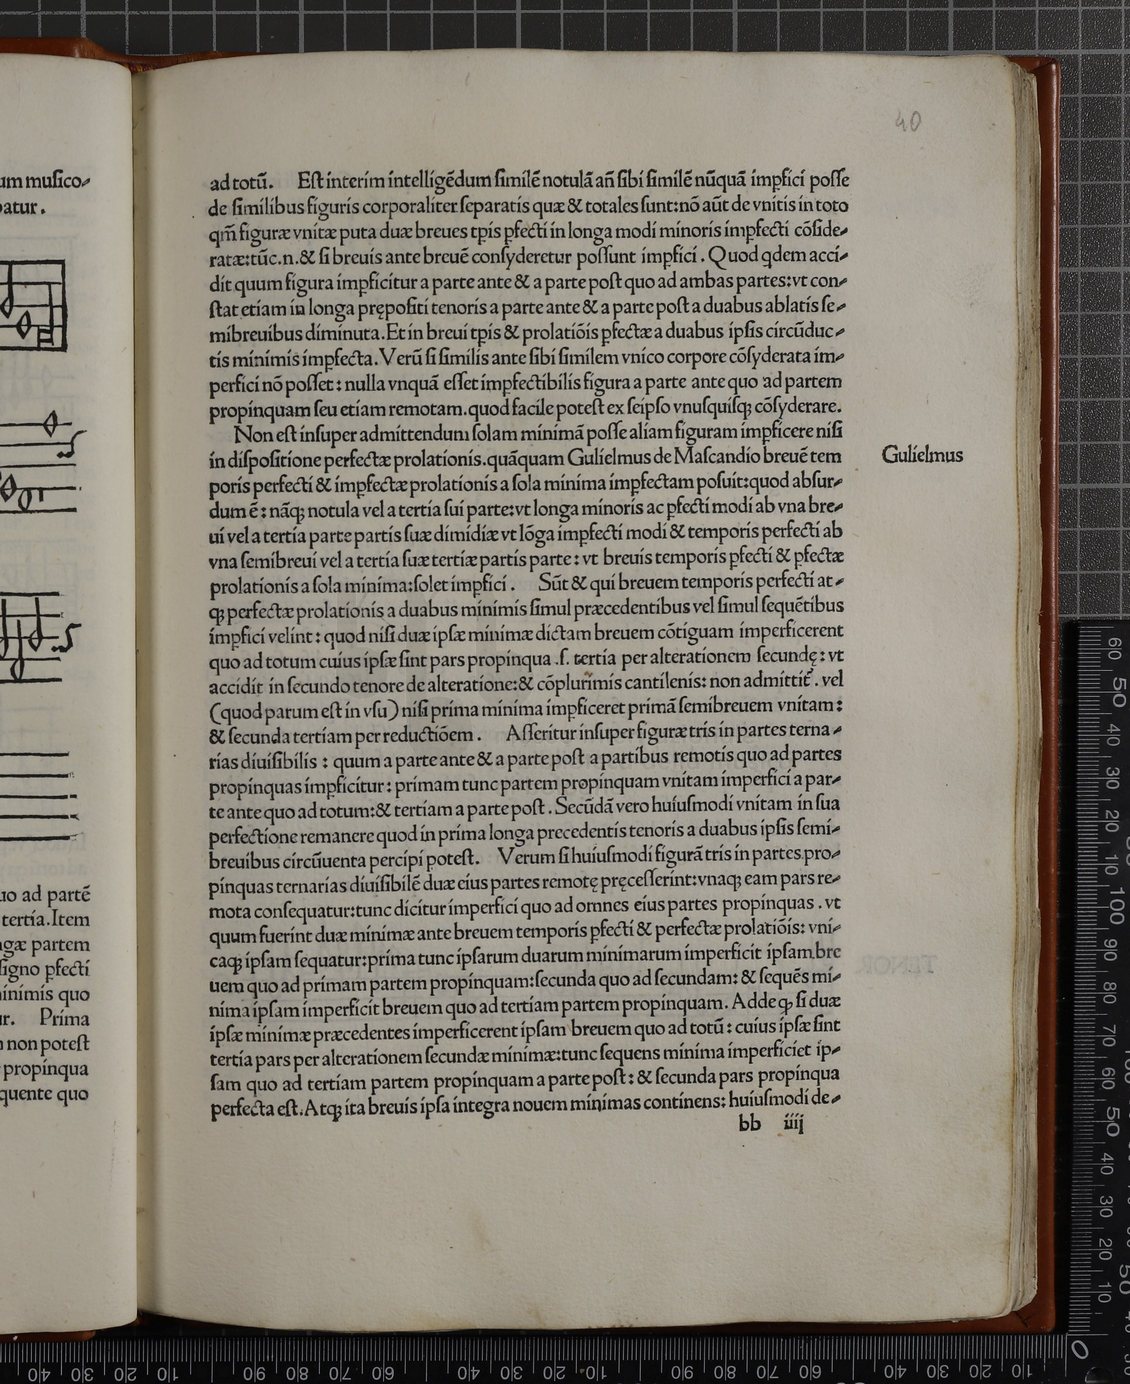 40
um musico-
patur.
uo ad partē
tertia. Item
gæ partem
signo pfecti
inimis quo
ur. Prima
n non potest
propinqua
quente quo
ad totū. Est interim intelligēdum similē notulā añ sibi similē nūquā impfici posse
de similibus figuris corporaliter separatis quæ & totales sunt: nō aūt de vnitis in toto
qm̄ figuræ vnitæ puta duæ breues tpis pfecti in longa modi minoris impfecti cōside-
ratæ: tūc.n.& si breuis ante breuē consyderetur possunt impfici. Quod qdem acci-
dit quum figura impficitur a parte ante & a parte post quo ad ambas partes: vt con-
stat etiam in longa prępositi tenoris a parte ante & a parte post a duabus ablatis se-
mibreuibus diminuta. Et in breui tpis & prolatiōis pfectæ a duabus ipsis circūduc-
tis minimis impfecta. Verū si similis ante sibi similem vnico corpore cōsyderata im-
perfici nō posset: nulla vnquā esset impfectibilis figura a parte ante quo ad partem
propinquam seu etiam remotam. quod facile potest ex seipso vnusquisq; cōsyderare.
Non est insuper admittendum solam minimā posse aliam figuram impficere nisi
in dispositione perfectæ prolationis. quāquam Gulielmus de Mascandio breuē tem
poris perfecti & impfectæ prolationis a sola minima impfectam posuit: quod absur-
dum ē: nāq; notula vel a tertia sui parte: vt longa minoris ac pfecti modi ab vna bre-
ui vel a tertia parte partis suæ dimidiæ vt lōga impfecti modi & temporis perfecti ab
vna semibreui vel a tertia suæ tertiæ partis parte: vt breuis temporis pfecti & pfectæ
prolationis a sola minima: solet impfici. Sūt & qui breuem temporis perfecti at-
q; perfectæ prolationis a duabus minimis simul præcedentibus vel simul sequētibus
impfici velint: quod nisi duæ ipsæ minimæ dictam breuem cōtiguam imperficerent
quo ad totum cuius ipsæ sint pars propinqua .s. tertia per alterationem secundę: vt
accidit in secundo tenore de alteratione: & cōplurimis cantilenis: non admittit̃. vel
(quod parum est in vsu) nisi prima minima impficeret primā semibreuem vnitam:
& secunda tertiam per reductiōem. Asseritur insuper figuræ tris in partes terna-
rias diuisibilis: quum a parte ante & a parte post a partibus remotis quo ad partes
propinquas impficitur: primam tunc partem propinquam vnitam imperfici a par-
te ante quo ad totum: & tertiam a parte post. Secūdā vero huiusmodi vnitam in sua
perfectione remanere quod in prima longa precedentis tenoris a duabus ipsis semi-
breuibus circūuenta percipi potest. Verum si huiusmodi figurā tris in partes pro-
pinquas ternarias diuisibilē duæ eius partes remotę pręcesserint: vnaq; eam pars re-
mota consequatur: tunc dicitur imperfici quo ad omnes eius partes propinquas. vt
quum fuerint duæ minimæ ante breuem temporis pfecti & perfectæ prolatiōis: vni-
caq; ipsam sequatur: prima tunc ipsarum duarum minimarum imperficit ipsam bre
uem quo ad primam partem propinquam: secunda quo ad secundam: & sequēs mi-
nima ipsam imperficit breuem quo ad tertiam partem propinquam. Adde q̃ si duæ
ipsæ minimæ præcedentes imperficerent ipsam breuem quo ad totū: cuius ipsæ sint
tertia pars per alterationem secundæ minimæ: tunc sequens minima imperficiet ip-
sam quo ad tertiam partem propinquam a parte post: & secunda pars propinqua
perfecta est. Atq; ita breuis ipsa integra nouem minimas continens: huiusmodi de-
bb iiij
Gulielmus